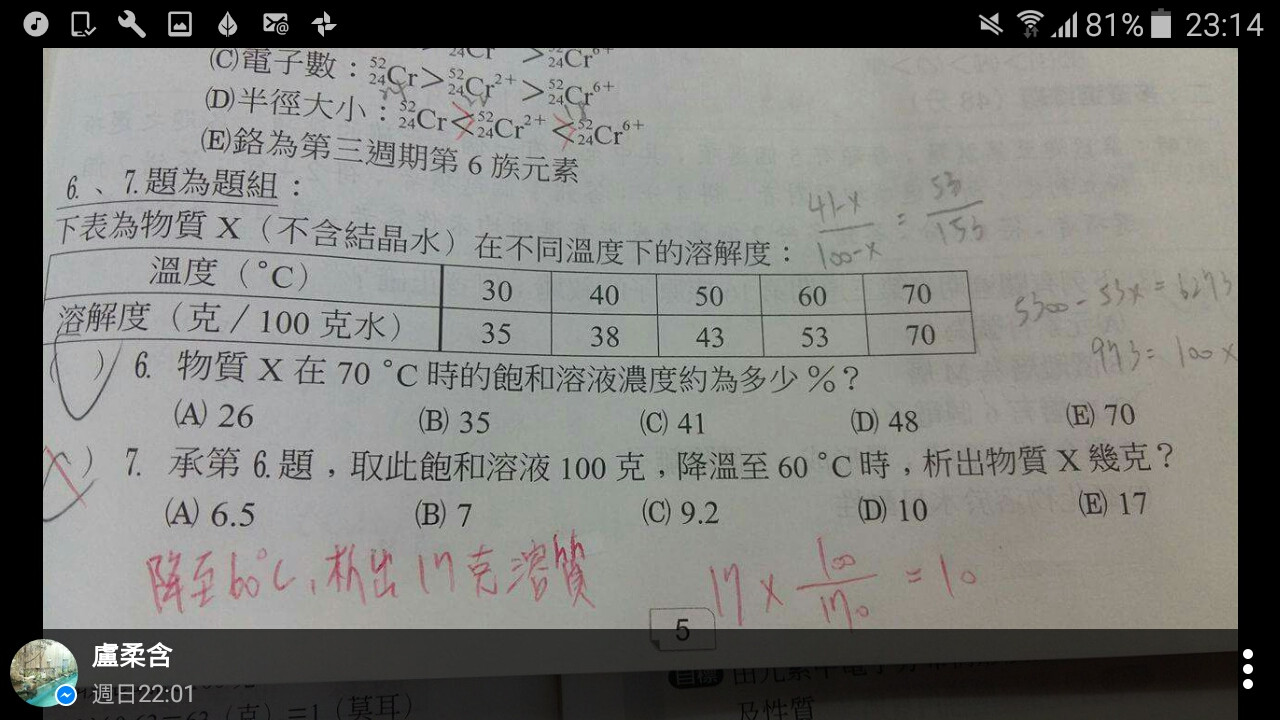 81% 23:14
(C)電子數：⁵²₂₄Cr>⁵²₂₄Cr²⁺>⁵²₂₄Cr⁶⁺
(D)半徑大小：⁵²₂₄Cr<⁵²₂₄Cr²⁺<⁵²₂₄Cr⁶⁺
(E)鉻為第三週期第 6 族元素
6.、7.題為題組：
下表為物質 X（不含結晶水）在不同溫度下的溶解度：
41-x / 100-x = 53 / 153
溫度（°C） 30 40 50 60 70
溶解度（克／100 克水） 35 38 43 53 70
5300 - 53x = 6273
973 = 100x
( ) 6. 物質 X 在 70 °C 時的飽和溶液濃度約為多少 %？
(A) 26 (B) 35 (C) 41 (D) 48 (E) 70
( ) 7. 承第 6.題，取此飽和溶液 100 克，降溫至 60 °C 時，析出物質 X 幾克？
(A) 6.5 (B) 7 (C) 9.2 (D) 10 (E) 17
降至60°C，析出17克溶質
17 x 100 / 170 = 10
5
盧柔含
週日22:01
目標
及性質
（克）＝1（莫耳）